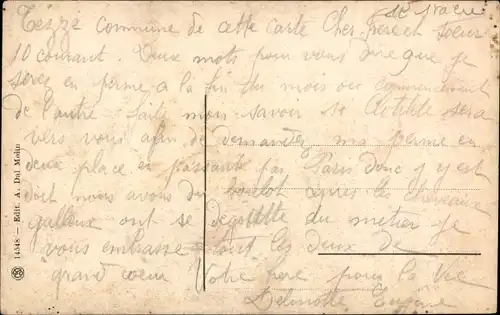 Tezze commune de cette carte Cher Frere et Soeur
10 courant. Deux mots pour vous dire que je
serez en perme a la fin du mois ou commencement
de l'autre faite mon savoir se Clotilde sera
vers vous afin de demander ma perme en
deux place en passante par Paris Donc y y est
doit nous avons du boulot apres les chevaux
galleux ont se degoutte du metier je
vous embrasse tout les deux de
grand coeur Votre frere pour la vie
Delmotte Eugene
14548 — Edit. A. Dal Molin